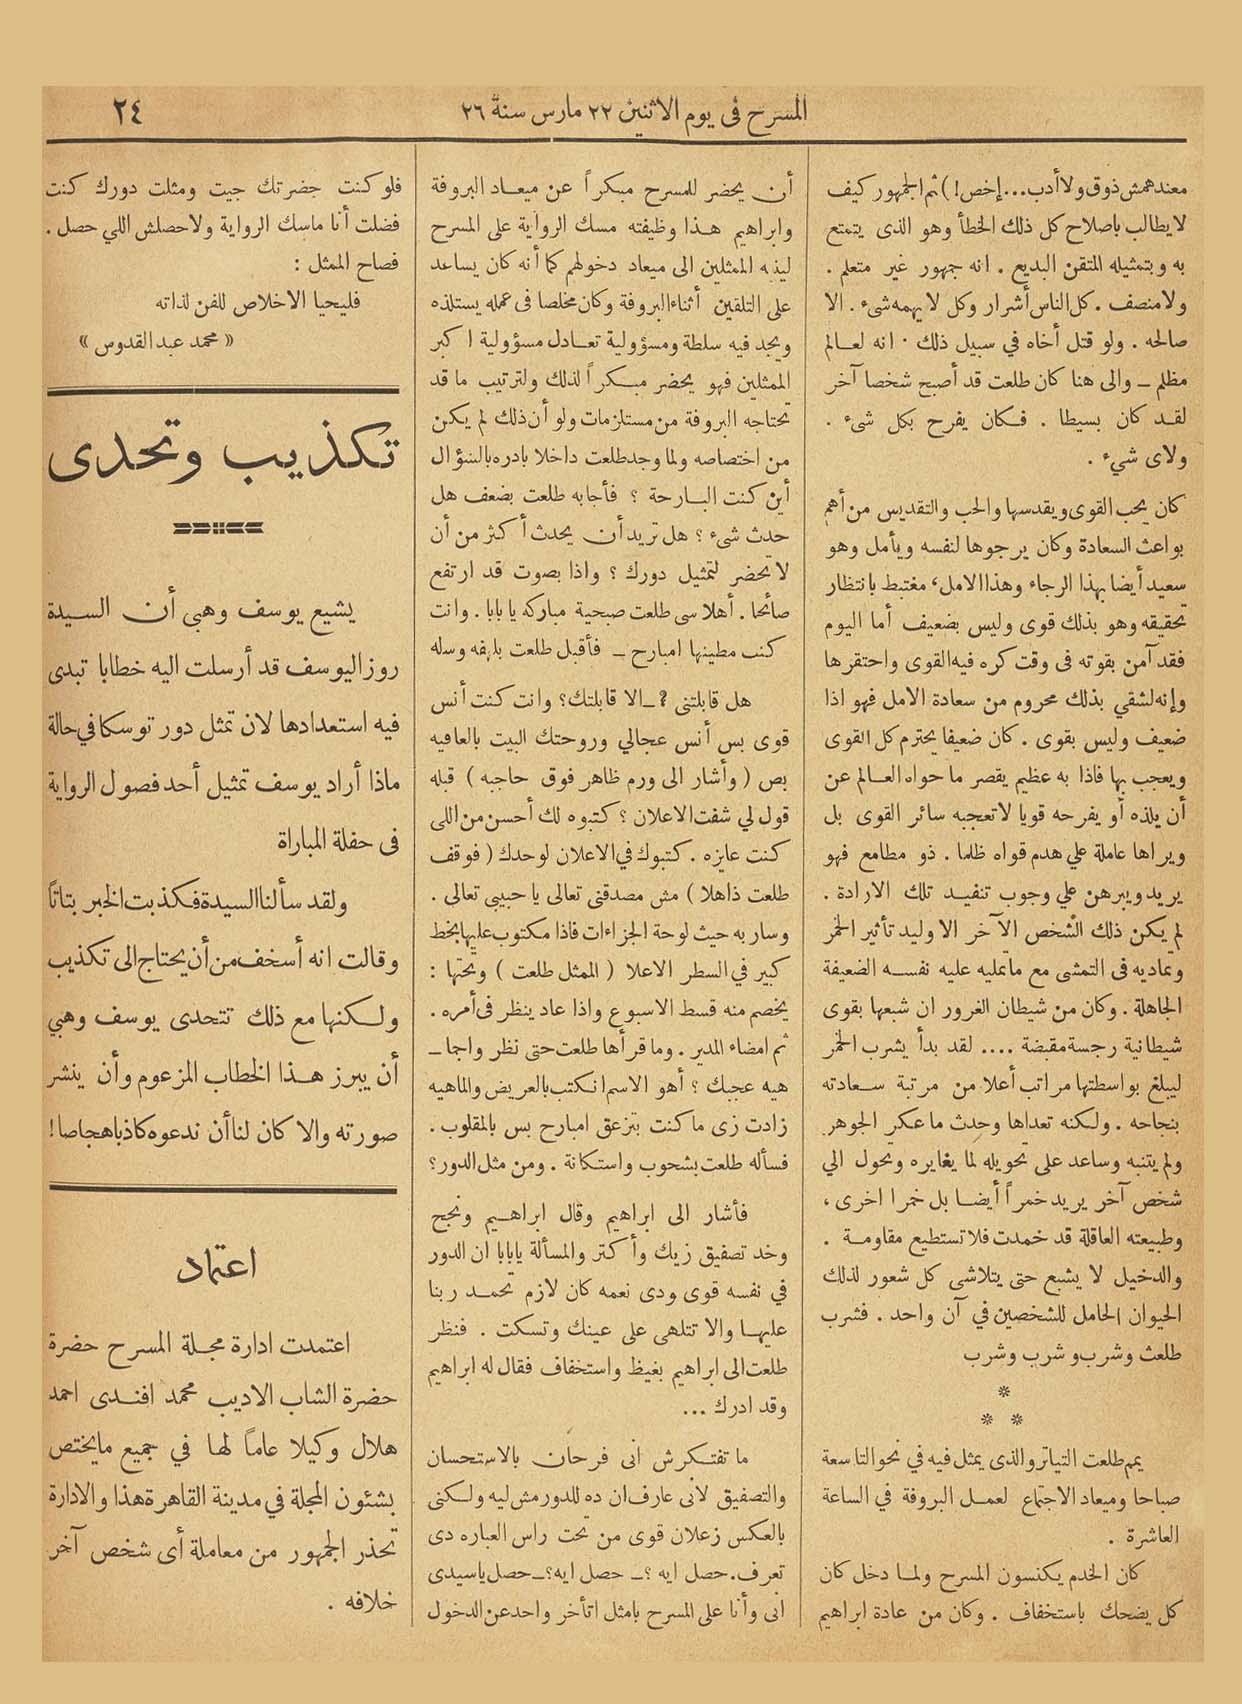 المسرح فى يوم الاثنين ٢٢ مارس سنة ٢٦
٢٤
معندهمش ذوق ولا أدب... إخص!) ثم الجمهور كيف
لا يطالب باصلاح كل ذلك الخطأ وهو الذى يتمتع
به وبتمثيله المتقن البديع . انه جمهور غير متعلم .
ولا منصف . كل الناس أشرار وكل لا يهمه شىء . الا
صالحه . ولو قتل أخاه في سبيل ذلك . انه لعالم
مظلم ــ والى هنا كان طلعت قد أصبح شخصا آخر
لقد كان بسيطا . فكان يفرح بكل شىء .
ولاى شيء .
كان يحب القوى ويقدسها والحب والتقديس من أهم
بواعث السعادة وكان يرجوها لنفسه ويأمل وهو
سعيد أيضا بهذا الرجاء وهذا الامل، مغتبط بانتظار
تحقيقه وهو بذلك قوى وليس بضعيف أما اليوم
فقد آمن بقوته فى وقت كره فيه القوى واحتقرها
وإنه لشقي بذلك محروم من سعادة الامل فهو اذا
ضعيف وليس بقوى . كان ضعيفا يحترم كل القوى
ويعجب بها فاذا به عظيم يقصر ما حواه العالم عن
أن يلذه أو يفرحه قويا لا تعجبه سائر القوى بل
ويراها عاملة علي هدم قواه ظلما . ذو مطامع فهو
يريد ويبرهن علي وجوب تنفيد تلك الارادة .
لم يكن ذلك الشخص الآخر الا وليد تأثير الخمر
وتماديه فى التمشى مع ما تمليه عليه نفسه الضعيفة
الجاهلة . وكان من شيطان الغرور ان شبعها بقوى
شيطانية رجسة مقبضة .... لقد بدأ يشرب الخمر
ليبلغ بواسطتها مراتب أعلا من مرتبة سعادته
بنجاحه . ولكنه تعداها وحدث ما عكر الجوهر
ولم يتنبه وساعد على تحويله لما يغايره وتحول الي
شخص آخر يريد خمراً أيضا بل خمرا اخرى ،
وطبيعته العاقلة قد خمدت فلا تستطيع مقاومة .
والدخيل لا يشبع حتى يتلاشى كل شعور لذلك
الحيوان الحامل للشخصين في آن واحد . فشرب
طلعت وشرب وشرب وشرب
*
* *
يمم طلعت التياترو الذى يمثل فيه في نحو التاسعة
صباحا وميعاد الاجتماع لعمل البروفة في الساعة
العاشرة .
كان الخدم يكنسون المسرح ولما دخل كان
كل يضحك باستخفاف . وكان من عادة ابراهيم
أن يحضر للمسرح مبكراً عن ميعاد البروفة
وابراهيم هذا وظيفته مسك الرواية على المسرح
لينبه الممثلين الى ميعاد دخولهم كما أنه كان يساعد
على التلقين أثناء البروفة وكان مخلصا فى عمله يستلذه
ويجد فيه سلطة ومسؤولية تعادل مسؤولية اكبر
الممثلين فهو يحضر مبكراً لذلك ولترتيب ما قد
تحتاجه البروفة من مستلزمات ولو أن ذلك لم يكن
من اختصاصه ولما وجد طلعت داخلا بادره بالسؤال
أين كنت البارحة ؟ فأجابه طلعت بضعف هل
حدث شىء ؟ هل تريد أن يحدث أكثر من أن
لا تحضر لتمثيل دورك ؟ واذا بصوت قد ارتفع
صائحا . أهلا سى طلعت صبحية مباركه يا بابا . وانت
كنت مطينها امبارح ــ فأقبل طلعت بلهفه وسله
هل قابلتنى ؟ــ الا قابلتك؟ وانت كنت أنس
قوى بس أنس عجالي وروحتك البيت بالعافيه
بص ( وأشار الى ورم ظاهر فوق حاجبه ) قبله
قول لي شفت الاعلان ؟ كتبوه لك أحسن من اللى
كنت عايزه . كتبوك في الاعلان لوحدك ( فوقف
طلعت ذاهلا ) مش مصدقنى تعالى يا حبيبى تعالى .
وسار به حيث لوحة الجزاءات فاذا مكتوب عليها بخط
كبير في السطر الاعلا ( الممثل طلعت ) وتحتها :
يخصم منه قسط الاسبوع واذا عاد ينظر فى أمره .
ثم امضاء المدير . وما قرأها طلعت حتى نظر واجما ــ
هيه عجبك ؟ أهو الاسم انكتب بالعريض والماهيه
زادت زى ما كنت بتزعق امبارح بس بالمقلوب .
فسأله طلعت بشحوب واستكانة . ومن مثل الدور؟
فأشار الى ابراهيم وقال ابراهيم ونجح
وخد تصفيق زيك وأكتر والمسألة يابابا ان الدور
في نفسه قوى ودى نعمه كان لازم تحمد ربنا
عليها والا تتلهى على عينك وتسكت . فنظر
طلعت الى ابراهيم بغيظ واستخفاف فقال له ابراهيم
وقد ادرك ...
ما تفتكرش انى فرحان بالاستحسان
والتصفيق لأنى عارف ان ده للدور مش ليه ولكنى
بالعكس زعلان قوى من تحت راس العباره دى
تعرف. حصل ايه ؟ــ حصل ايه؟ــ حصل ياسيدى
انى وأنا على المسرح بامثل اتأخر واحد عن الدخول
فلو كنت حضرتك جيت ومثلت دورك كنت
فضلت أنا ماسك الرواية ولا حصلش اللي حصل .
فصاح الممثل :
فليحيا الاخلاص للفن لذاته
« محمد عبد القدوس »
تكذيب وتحدى
يشيع يوسف وهبي أن السيدة
روز اليوسف قد أرسلت اليه خطابا تبدى
فيه استعدادها لان تمثل دور توسكا في حالة
ماذا أراد يوسف تمثيل أحد فصول الرواية
فى حفلة المباراة
ولقد سألنا السيدة فكذبت الخبر بتاتاً
وقالت انه أسخف من أن يحتاج الى تكذيب
ولكنها مع ذلك تتحدى يوسف وهبي
أن يبرز هذا الخطاب المزعوم وأن ينشر
صورته والا كان لنا أن ندعوه كاذبا هجاصا!
اعتماد
اعتمدت ادارة مجلة المسرح حضرة
حضرة الشاب الاديب محمد افندى احمد
هلال وكيلا عاماً لها في جميع ما يختص
بشئون المجلة في مدينة القاهرة هذا والادارة
تحذر الجمهور من معاملة أى شخص آخر
خلافه .